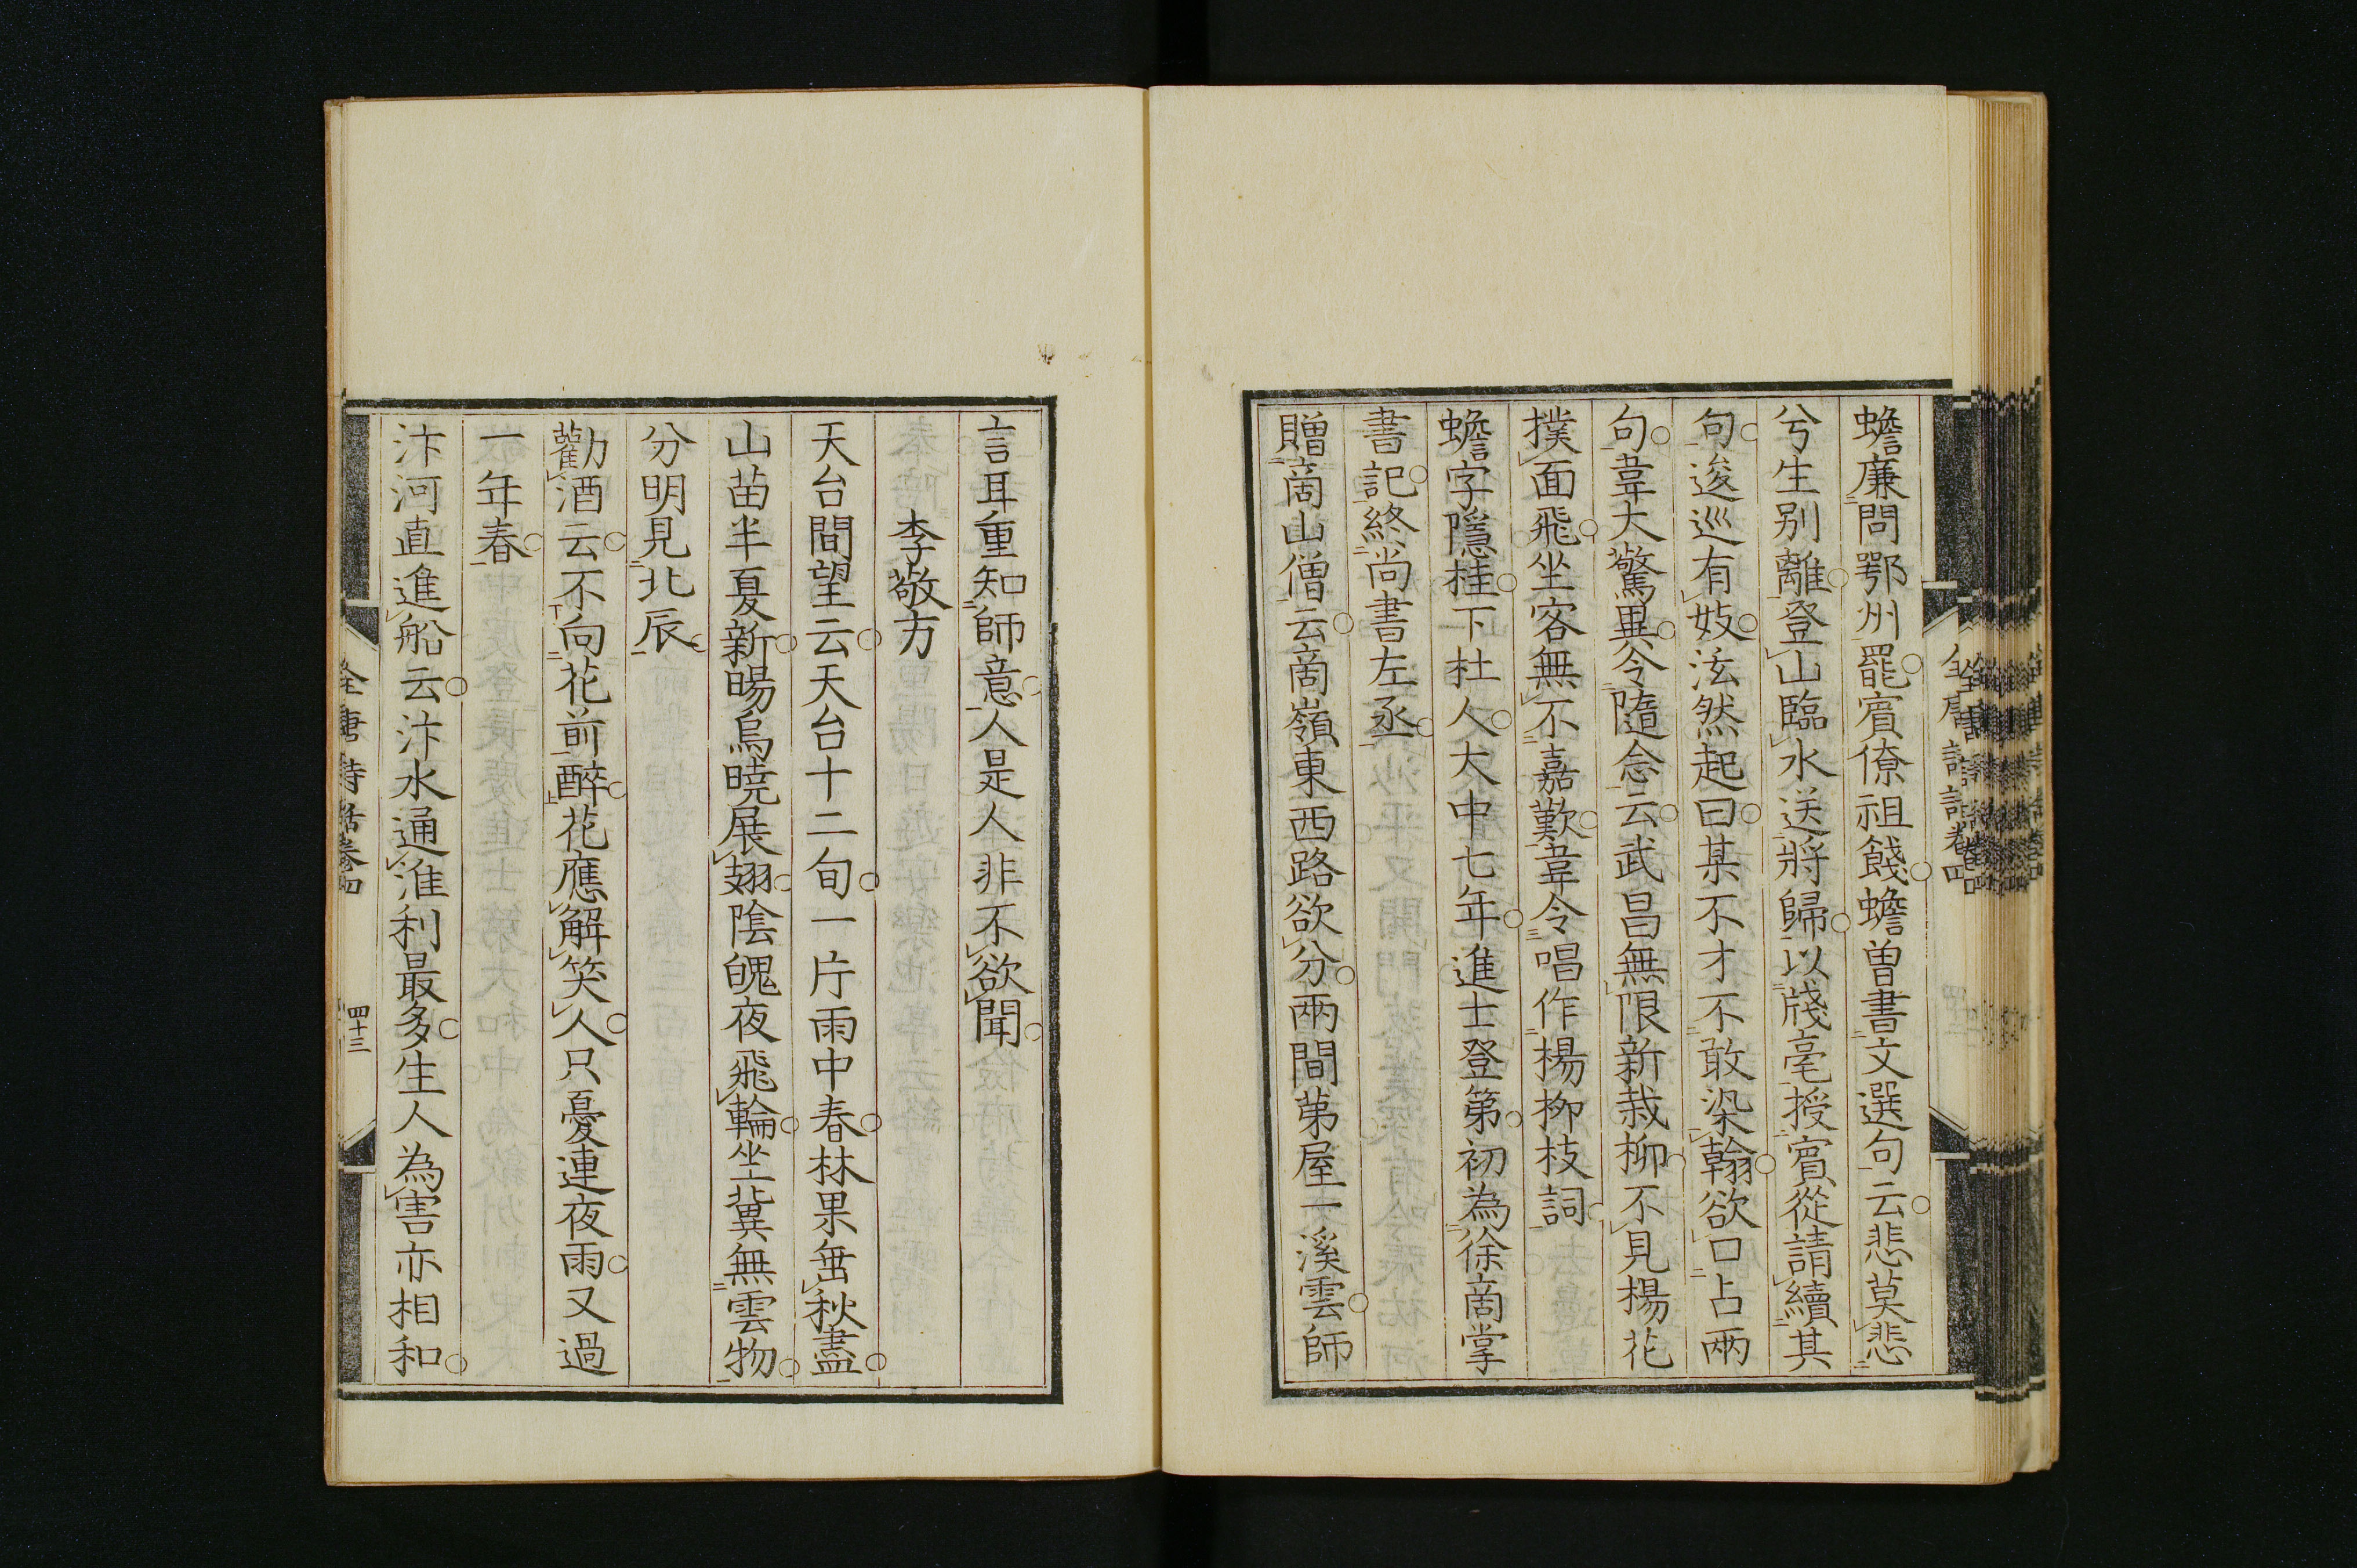 蟾廉問鄂州罷賓僚祖餞蟾曽書文選句云悲莫悲
兮生别離登山臨水送將歸以牋毫授賓從請續其
句逡巡有妓泫然起曰某不才不敢染翰欲口占兩
句韋大驚異令隨念云武昌無限新栽柳不見楊花
撲面飛坐客無不嘉歎韋令唱作楊柳枝詞
蟾字隱桂下杜人大中七年進士登第初為徐商掌
書記終尚書左丞
贈商山僧云商嶺東西路欲分兩間茅屋一溪雲師
言耳重知師意人是人非不欲聞
李敬方
天台閒望云天台十二旬一片雨中春林果黃秋盡
山苗半夏新暘烏曉展翅陰魄夜飛輪坐冀無雲物
分明見北辰
勸酒云不向花前醉花應解笑人只憂連夜雨又過
一年春
汴河直進船云汴水通淮利最多生人為害亦相和
全唐詩話卷四
四十三